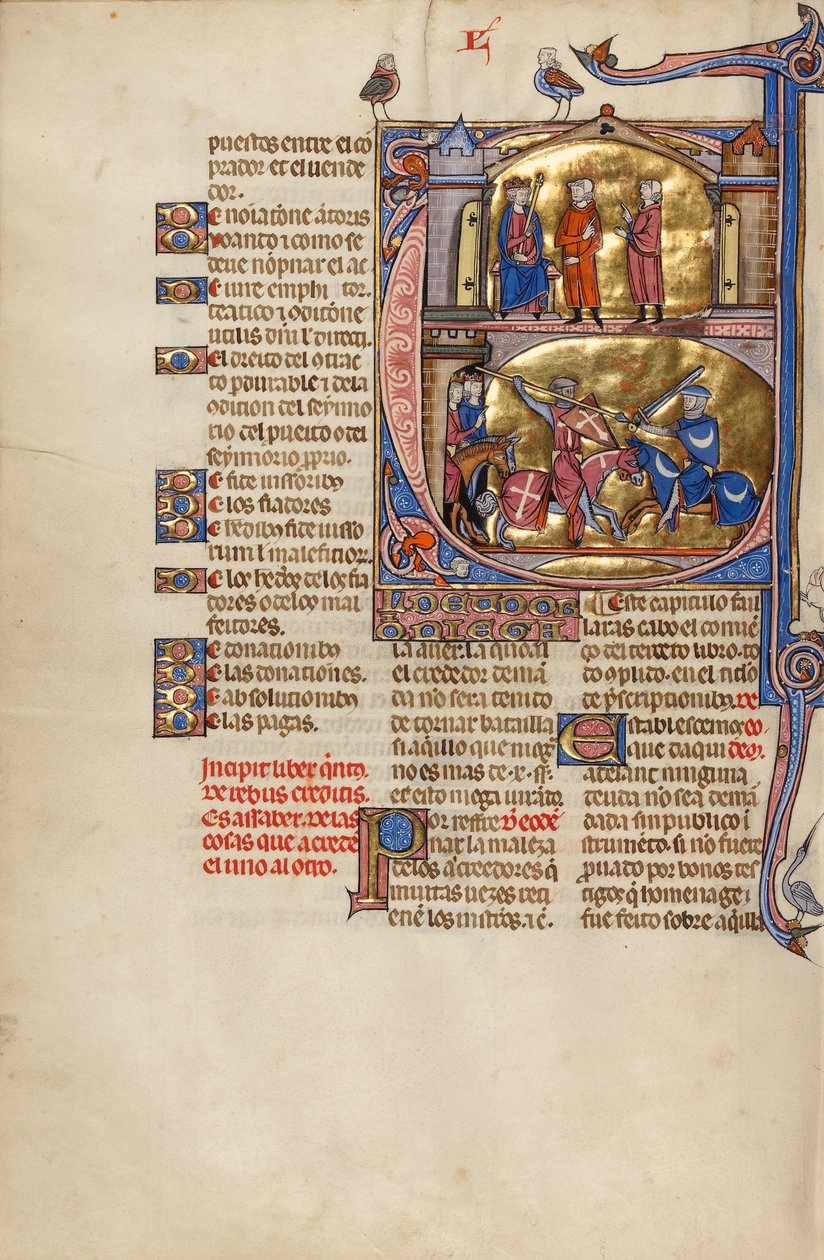 puestos entre el cō
prador et el uende
dor.
De noiatōne āctoris
De quanto ⁊ como se
deue nōpnar el ac
De iure emphi tor.
teatico ⁊ ɔditōne
utilis
Del dreito del ɔtrac
to perdurable ⁊ dela
ɔdition del seynno
rio del puerto o del
seynnorio proprio.
De fide iussoribus
De los fiadores
De hedibus fide iusso
rum
De los
dores o delos mal
feitores.
De donationibus
De las donationes.
De absolutionibus
De las pagas.
Incipit liber qͥntus.
De rebus creditis.
Es assaber. de las
cosas que acreede
el uno al otro.
EL DEUDOR
Q̄ NIEGA
la auer. la qual li
el creedor demā
da no sera tenido
de tornar batailla
si aqͥllo que
no es mas de .x. ss.
et esto niega iurādo.
Por reffre
nar la maleza
delos acreedores qͥ
muitas uezes reti
enē los
Este capitulo fail
laras cabo el comiē
ço del tercero libro. to
do ɔplido. en el titlo
de p̄scriptionibus. De
Establescemos eo
que daqui dem.
adelant ninguna
deuda no sea demā
dada sin publico ī
strumēto. si no fuere
prouado por bonos tes
tigos qͥ homenage
fue feito sobre aqͥlla